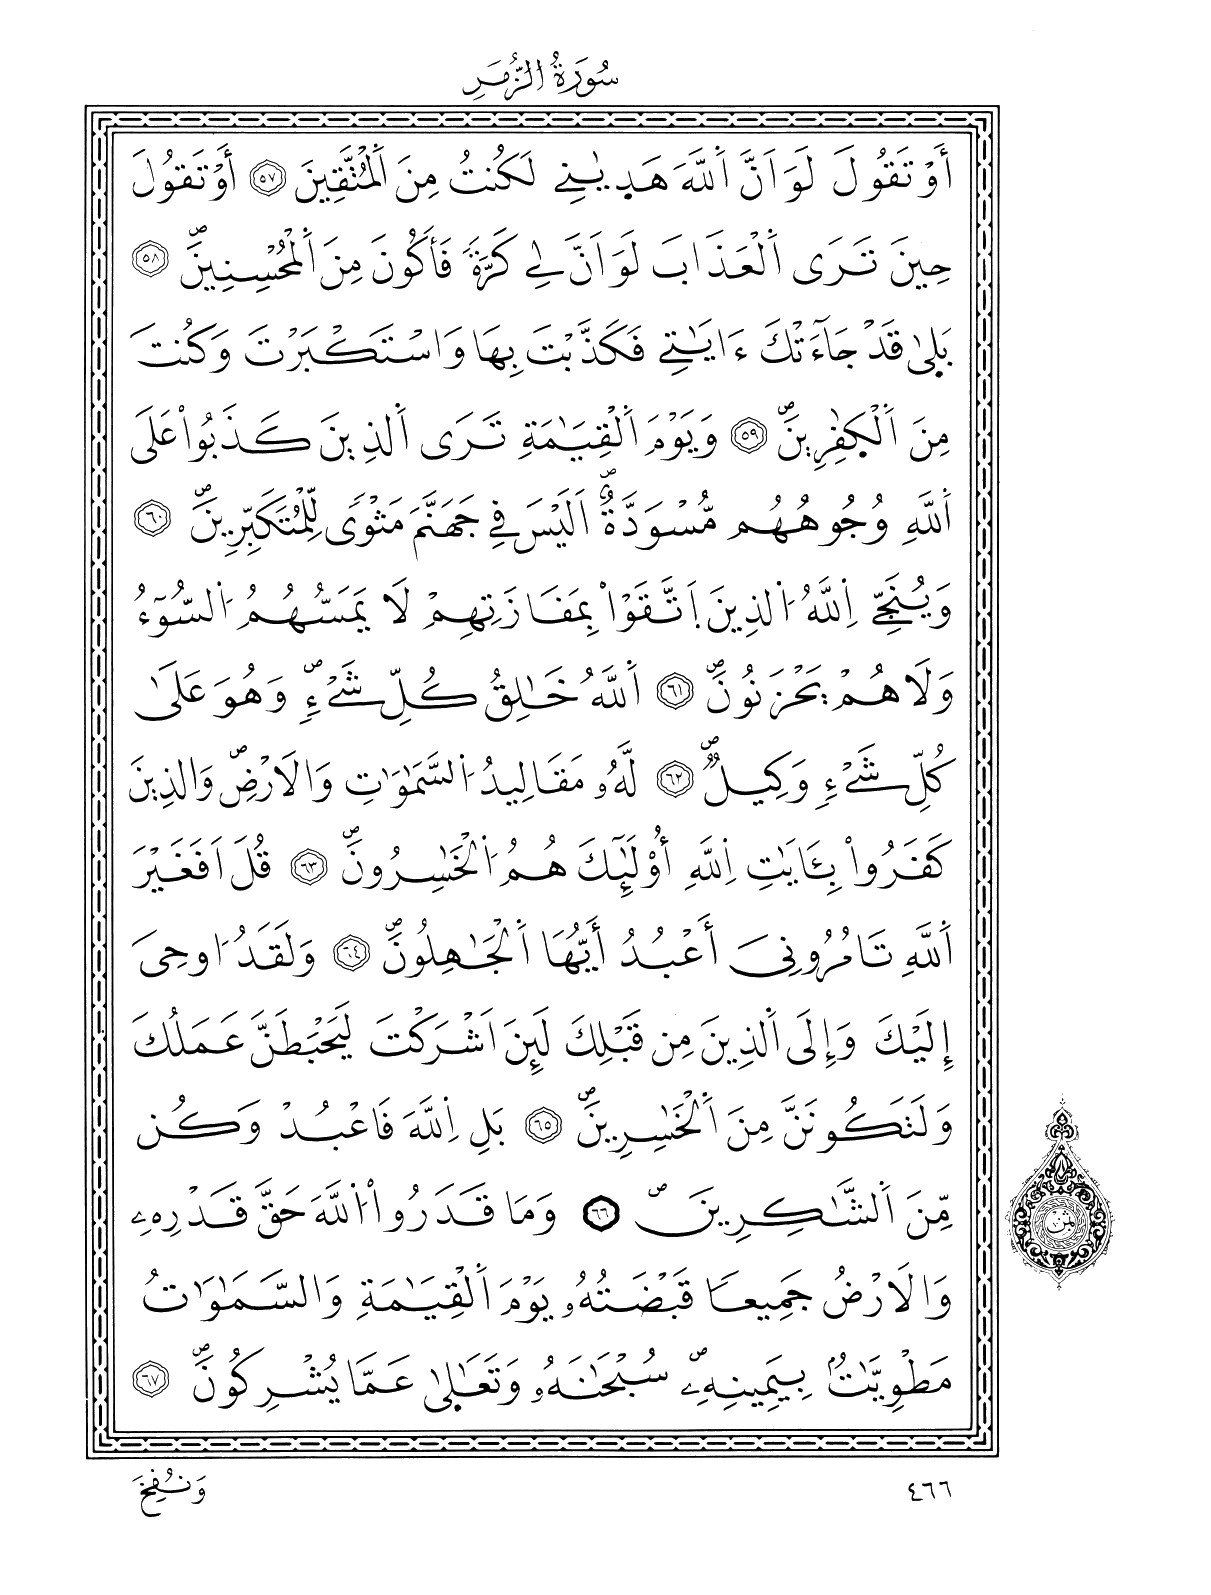 سُورَةُ الزُّمَرِ
أَوْ تَقُولَ لَوَ اَنَّ اَ۬للَّهَ هَد۪يٰنِے لَكُنتُ مِنَ اَ۬لْمُتَّقِينَ ٥٧ أَوْ تَقُولَ
حِينَ تَرَى اَ۬لْعَذَابَ لَوَ اَنَّ لِے كَرَّةٗ فَأَكُونَ مِنَ اَ۬لْمُحْسِنِينَۖ ٥٨
بَل۪يٰ قَدْ جَآءَتْكَ ءَايَٰتِے فَكَذَّبْتَ بِهَا وَاسْتَكْبَرْتَ وَكُنتَ
مِنَ اَ۬لْكٰ۪فِرِينَۖ ٥٩ وَيَوْمَ اَ۬لْقِيَٰمَةِ تَرَى اَ۬لذِينَ كَذَبُواْ عَلَى
اَ۬للَّهِ وُجُوهُهُم مُّسْوَدَّةٌۖ اَلَيْسَ فِے جَهَنَّمَ مَثْوىٗ لِّلْمُتَكَبِّرِينَۖ ٦٠
وَيُنَجِّے اِ۬للَّهُ اُ۬لذِينَ اَ۪تَّقَوْاْ بِمَفَازَتِهِمْ لَا يَمَسُّهُمُ اُ۬لسُّوٓءُ
وَلَا هُمْ يَحْزَنُونَۖ ٦١ اَ۬للَّهُ خَٰلِقُ كُلِّ شَےْءٖۖ وَهُوَ عَلَىٰ
كُلِّ شَےْءٖ وَكِيلٞۖ ٦٢ لَّهُۥ مَقَالِيدُ اُ۬لسَّمَٰوَٰتِ وَالَارْضِۖ وَالذِينَ
كَفَرُواْ بِـَٔايَٰتِ اِ۬للَّهِ أُوْلَٰٓئِكَ هُمُ اُ۬لْخَٰسِرُونَۖ ٦٣ قُلَ اَفَغَيْرَ
اَ۬للَّهِ تَامُرُونِيَ أَعْبُدُ أَيُّهَا اَ۬لْجَٰهِلُونَۖ ٦٤ وَلَقَدُ ا۟وحِيَ
إِلَيْكَ وَإِلَى اَ۬لذِينَ مِن قَبْلِكَ لَئِنَ اَشْرَكْتَ لَيَحْبَطَنَّ عَمَلُكَ
وَلَتَكُونَنَّ مِنَ اَ۬لْخَٰسِرِينَۖ ٦٥ بَلِ اِ۬للَّهَ فَاعْبُدْ وَكُن
مِّنَ اَ۬لشَّٰكِرِينَۖ ٦٦ وَمَا قَدَرُواْ اُ۬للَّهَ حَقَّ قَدْرِهِۦ
وَالَارْضُ جَمِيعاٗ قَبْضَتُهُۥ يَوْمَ اَ۬لْقِيَٰمَةِ وَالسَّمَٰوَٰتُ
مَطْوِيَّٰتُۢ بِيَمِينِهِۦۖ سُبْحَٰنَهُۥ وَتَعَٰل۪يٰ عَمَّا يُشْرِكُونَۖ ٦٧
ثمن
وَنُفِخَ
٤٦٦